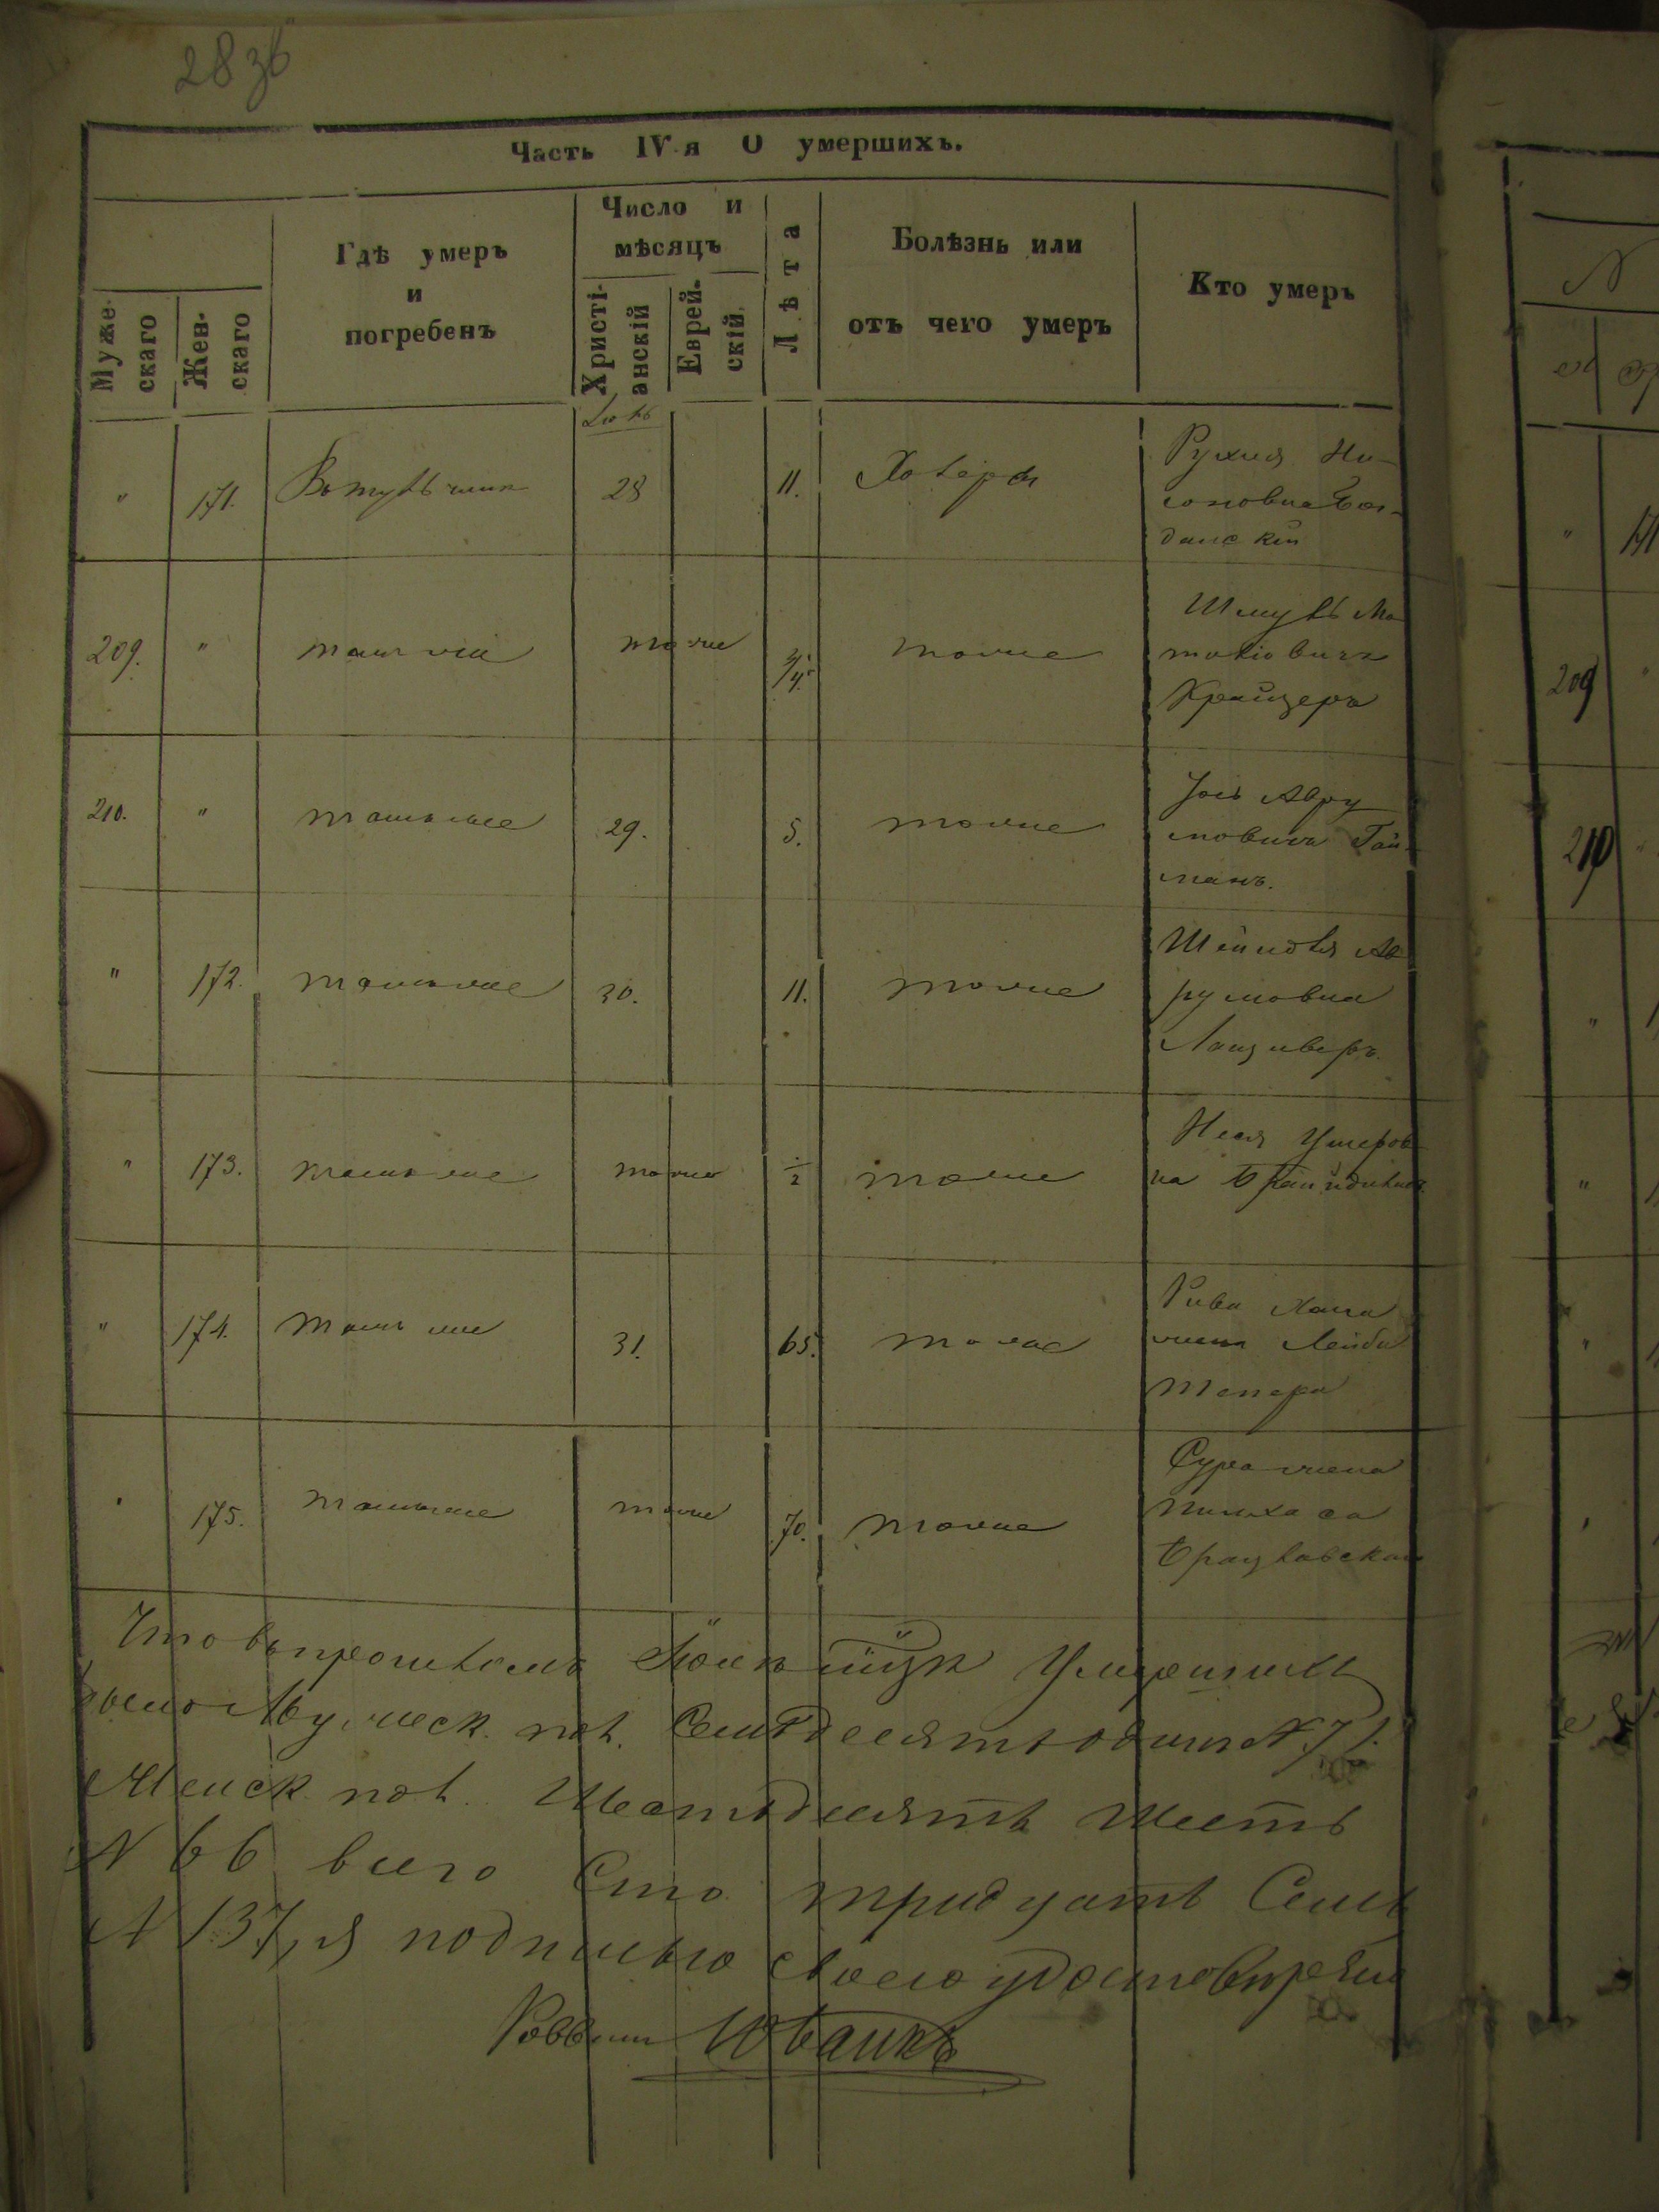 28 зб
Часть IV-я О умершихъ.
Муже-
скаго
Жен-
скаго
Гдѣ умеръ
и
погребенъ
Число и
мѣсяцъ
Христі-
анскій
Еврей-
скій.
Лѣта
Болѣзнь или
отъ чего умеръ
Кто умеръ
" 171. 28 11. Холера Рухля
данскій
209. " тамже тоже 3/4 тоже Шмуль Мо
тьліовичъ
Крайзеръ
210. " тамъже 29. 5. тоже Іось Авру
мовичъ Гай-
манъ.
" 172. тамъже 30. 11. тоже Шейндля Ав
румовна
" 173. тамъже тоже 1/2 тоже Неся Ушеров
на
" 174. тамъже 31. 65. тоже Рива Хана
жена Лейби
Тепера
" 175. тамъже тоже 70. тоже Сура жена
Пинхаса
Брацлавская
Что въ прошломъ Іюль мцѣ Умершихъ
было Мужеск. пол. Семдесятъ одинъ N 71.
Женск. пол. Шестьдесятъ шесть
N 66 всего Сто тридцать Семь
N 137, я подписью своею удостовѣряю
Раввинъ